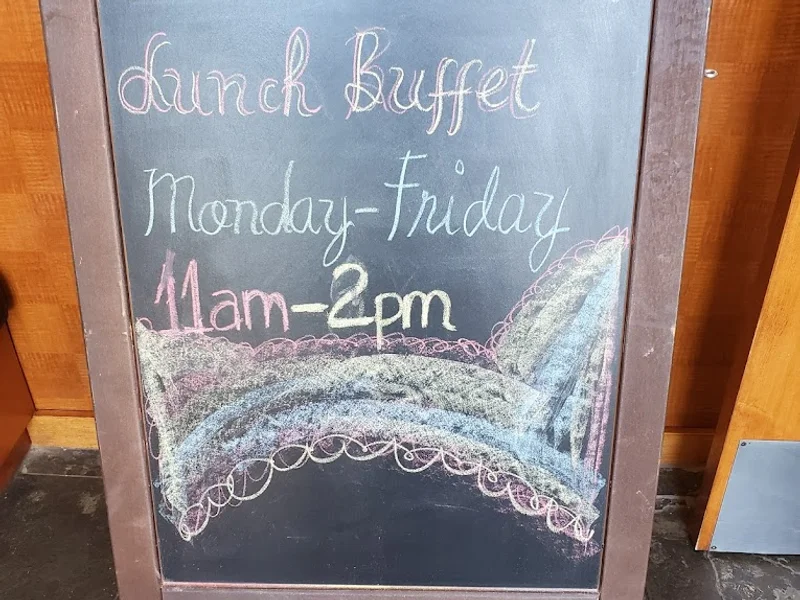 Lunch Buffet
Monday-Friday
11am-2pm